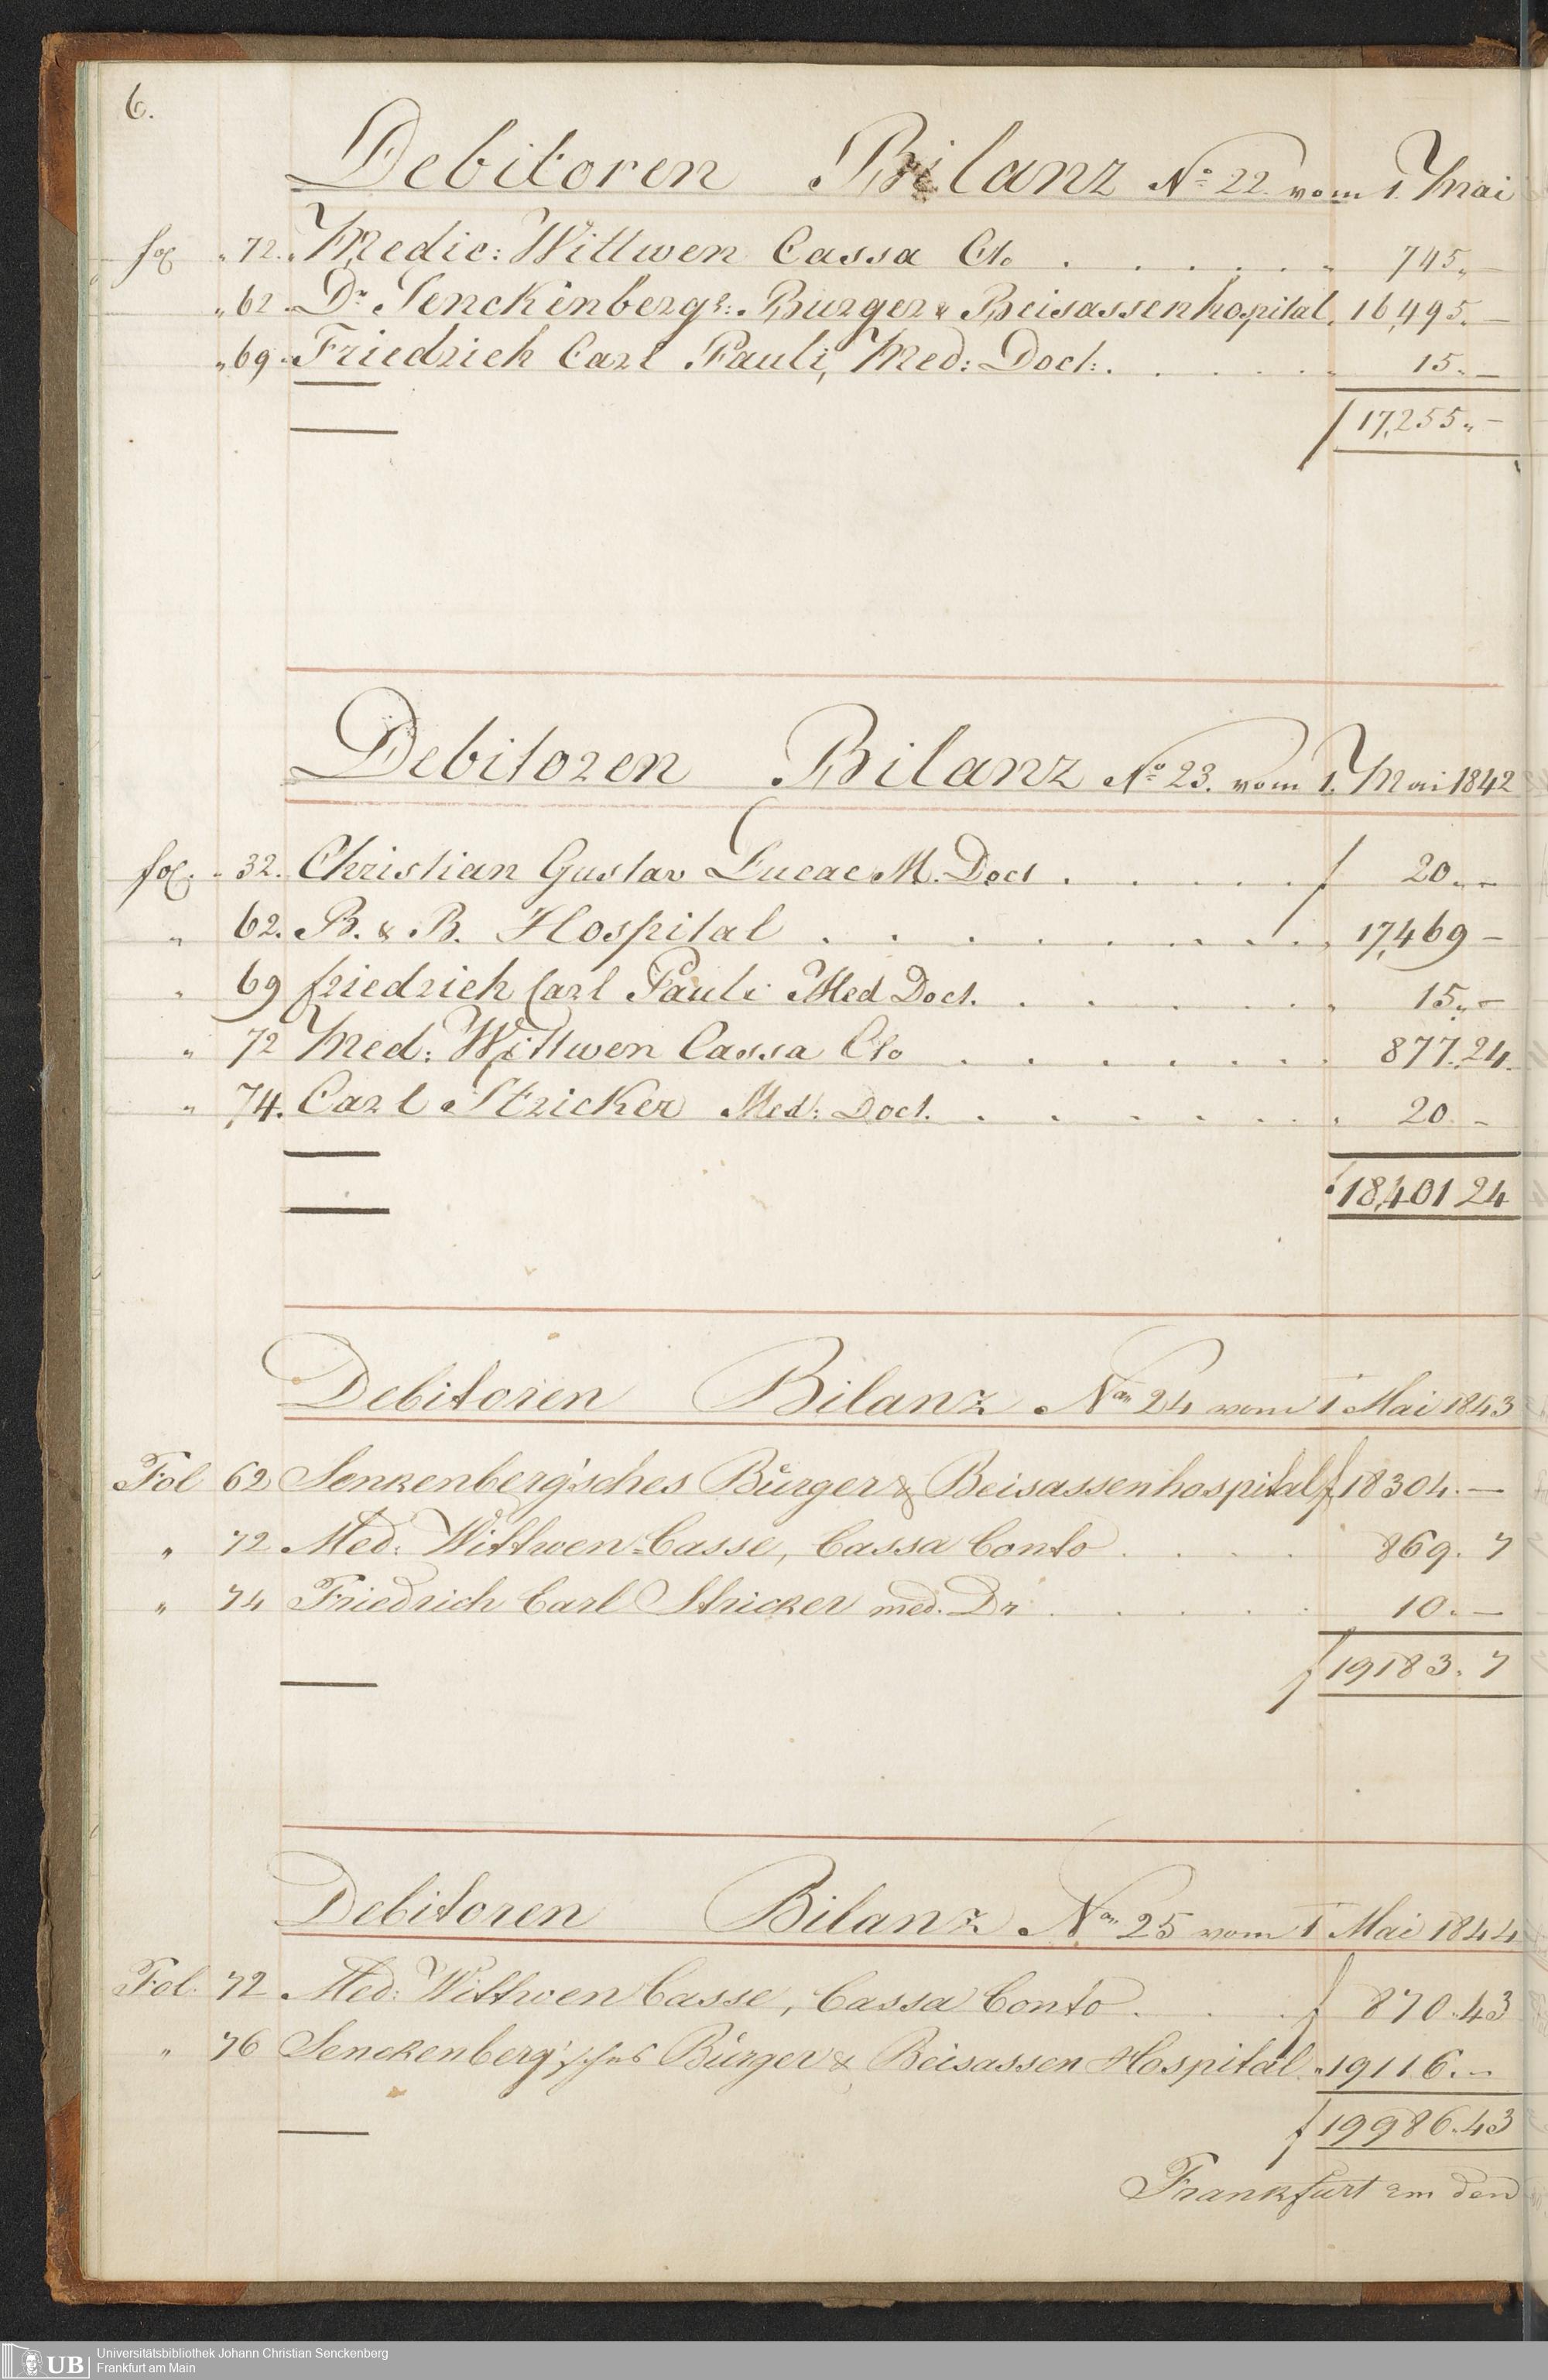 6.
Debitoren Bilanz No. 22. vom 1. Mai
fol „ 72. „ Medic: Wittwen Cassa Cto . . . . . „ 745 „ —
„ 62. Dr. Senckenbergs: Burger & Beisassenhospital. 16,495. —
„ 69. Friedrich Carl Pauli, Med: Doct: . . . . . „ 15. „ —
f 17,255 „ —
Debitoren Bilanz No. 23. vom 1. Mai 1842
fol. „ 32. Christian Gustav Lucae M. Doct . . . . f 20 „ —
„ 62. B. & B. Hospital . . . . . . . . 17,469 —
„ 69 friedrich Carl Pauli Med Doct. . . . . . „ 15 „ —
„ 72 Med: Wittwen Cassa Cto . . . . . . 877.24.
„ 74. Carl Stricker Med: Doct. . . . . . . 20 —
f 18,401 24
Debitoren Bilanz No. 24 vom 1 Mai 1843
Fol 62 Senkenberg'sches Bürger & Beisassenhospital f 18304. —
„ 72 Med: Wittwen=Casse, Cassa Conto . . . 869. 7
„ 74 Friedrich Carl Stricker med. Dr . . . . . 10. —
f 19183. 7
Debitoren Bilanz No. 25 vom 1 Mai 1844
Fol. 72 Med: Wittwen Casse, Cassa Conto . . . f 870.43
„ 76 Senckenberg'sches Bürger & Beisassen Hospital „ 19116. —
f 19986.43
Frankfurt am den
UB Universitätsbibliothek Johann Christian Senckenberg
Frankfurt am Main